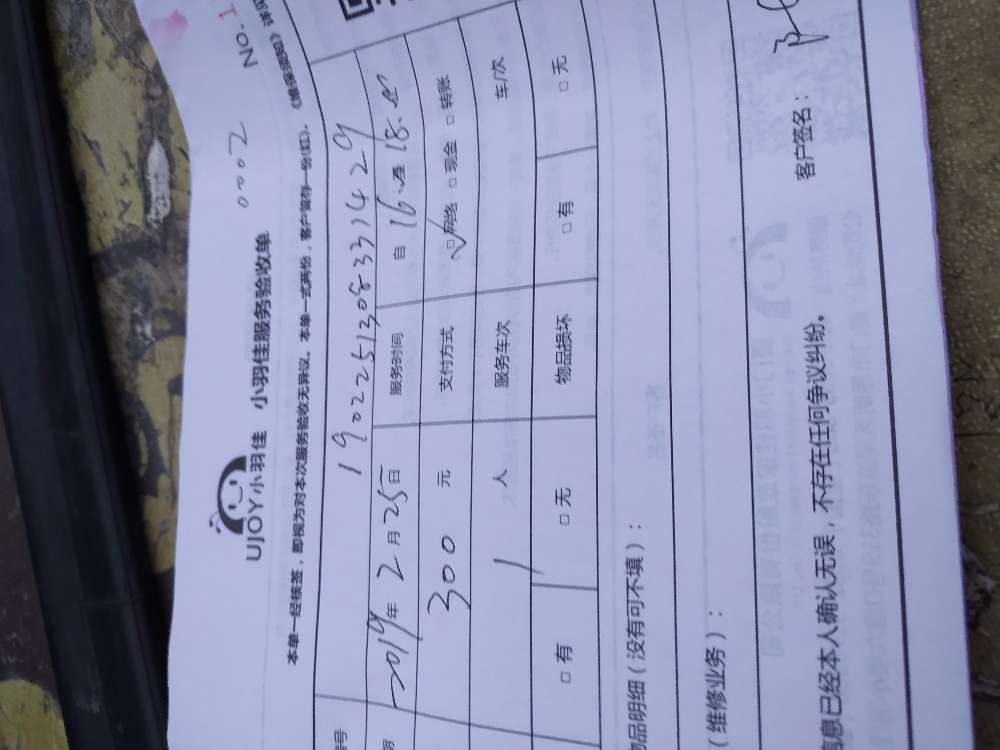 UJOY小羽佳 小羽佳服务验收单 0002 No.1
本单一经核签，即视为对本次服务验收无异议。本单一式两份，客户留存一份(红)。
编号 190225130833142 9
2019年2月25日 服务时间 自 16 至 18
300 元 支付方式 ☑网络 □现金 □转账
1 人 服务车次 车/次
□有 □无 物品损坏 □有 □无
物品明细（没有可不填）：
（维修业务）：
信息已经本人确认无误，不存在任何争议纠纷。 客户签名：